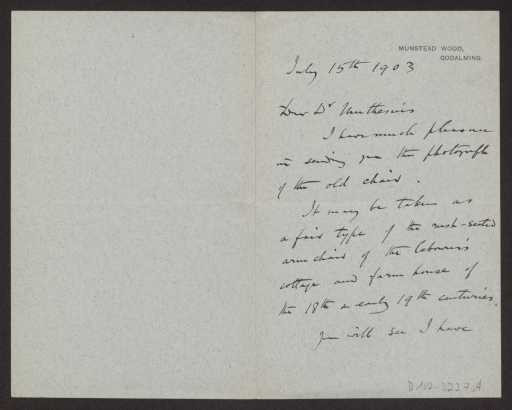 MUNSTEAD WOOD,
GODALMING.
July 15th 1903
Dear Dr Muthesius
I have much pleasure
in sending you the photograph
of the old chair.
It may be taken as
a fair type of the rush-seated
armchair of the labourer's
cottage and farm house of
the 18th & early 19th centuries.
You will see I have